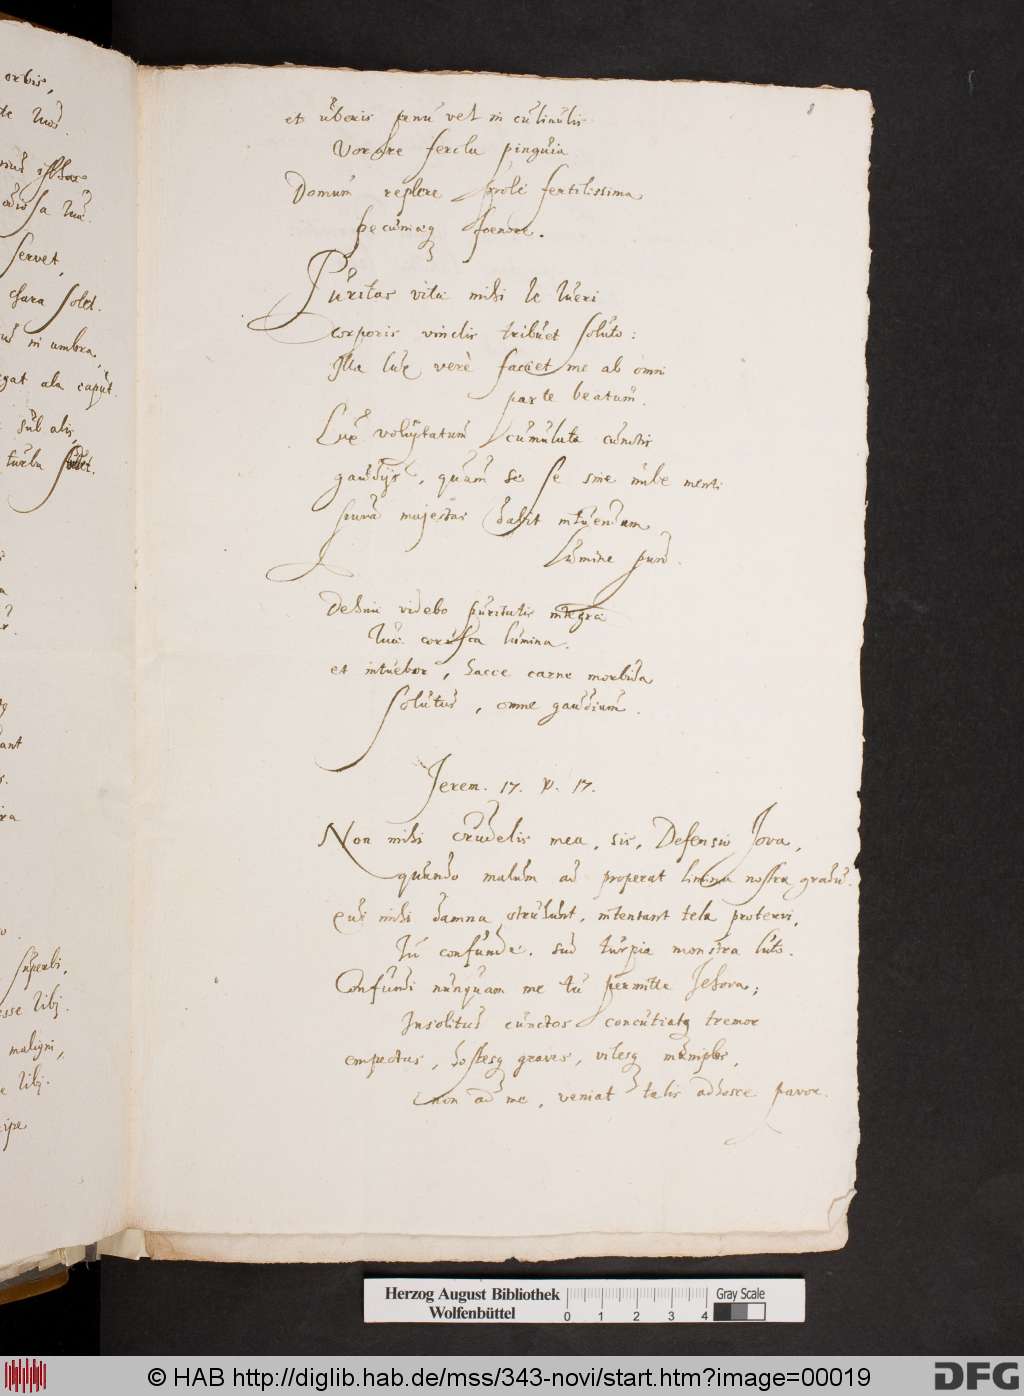 orbis,
servet,
chara solet.
in umbra,
egat ala caput.
sub alis,
turba
ant
superbi,
esse tibi.
maligni,
e tibi.
cipe
8
et uberis penu vel in culinulis
Vorare fercla pinguia
Domum replere prole fertilissima
pecuniaeq foenore.
Puritas vitae mihi te tueri
corporis vinclis tribuet soluto:
Illa lux verè faciet me ab omni
parte beatum.
Lux voluptatum cumulata cunctis
gaudijs, quum se se sine nube menti
pura majestas dabit intuendam
Lumine puro.
Dehinc videbo puritatis integra
tuae corusca lumina.
et intuebor, hacce carne morbida
solutus, omne gaudium.
Jerem. 17. v. 17.
Non mihi crudelis mea, sis, Defensio Jova,
quando malum ad properat limina nostra gradu.
Qui mihi damna struunt, intentant tela protervi,
tu confunde. suo turpia monstra luto.
Confundi nunquam me tu permitte Jehova;
Insolitus cunctos concutiatq tremor
empectas, hostesq graves, vilesq maniplos,
non ad me, veniat talis adhosce pavor.
Herzog August Bibliothek
Wolfenbüttel
0 1 2 3 4
Gray Scale
© HAB http://diglib.hab.de/mss/343-novi/start.htm?image=00019
DFG